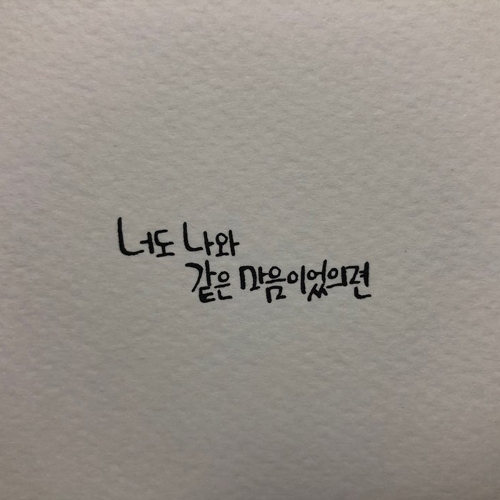 너도 나와
같은 마음이었으면